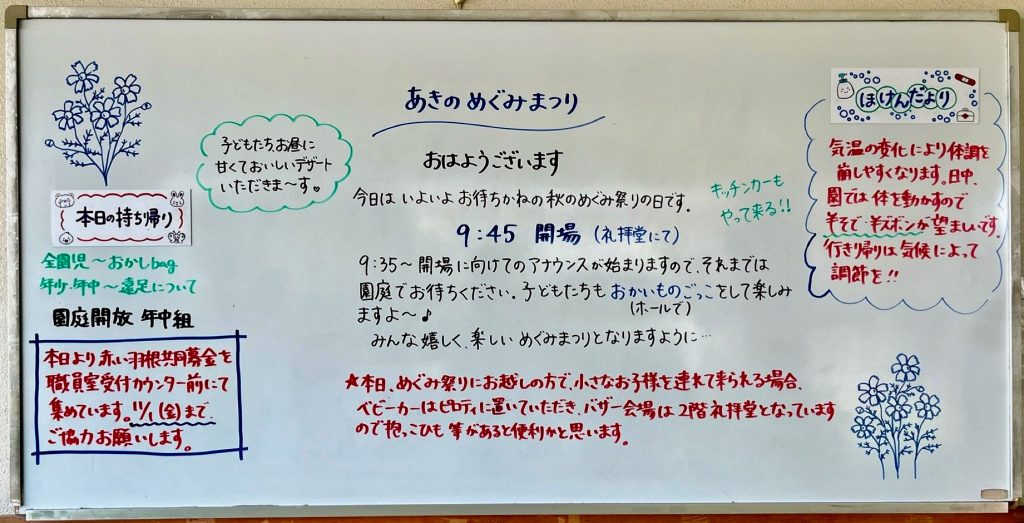 あきの めぐみまつり
子どもたち、お昼に
甘くておいしいデザート
いただきま〜す。
おはようございます
今日は いよいよ お待ちかねの 秋のめぐみ祭りの日です。
キッチンカーも
やって来る!!
9:45 開場 (礼拝堂にて)
9:35〜 開場に向けてのアナウンスが始まりますので、それまでは
園庭でお待ちください。子どもたちも おかいものごっこをして楽しみ
(ホールで)
ますよ〜♪
みんな嬉しく、楽しい めぐみまつりとなりますように…
★本日、めぐみ祭りにお越しの方で、小さなお子様を連れて来られる場合、
ベビーカーはピロティに置いていただき、バザー会場は2階礼拝堂となっています
ので抱っこひも 等があると便利かと思います。
本日の持ち帰り
全園児〜おかしbag
年少・年中〜遠足について
園庭開放 年中組
本日より赤い羽根共同募金を
職員室受付カウンター前にて
集めています。11/1(金)まで、
ご協力お願いします。
ほけんだより
気温の変化により体調を
崩しやすくなります。日中、
園では 体を動かすので
半そで・半ズボンが望ましいです。
行き帰りは気候によって
調節を!!